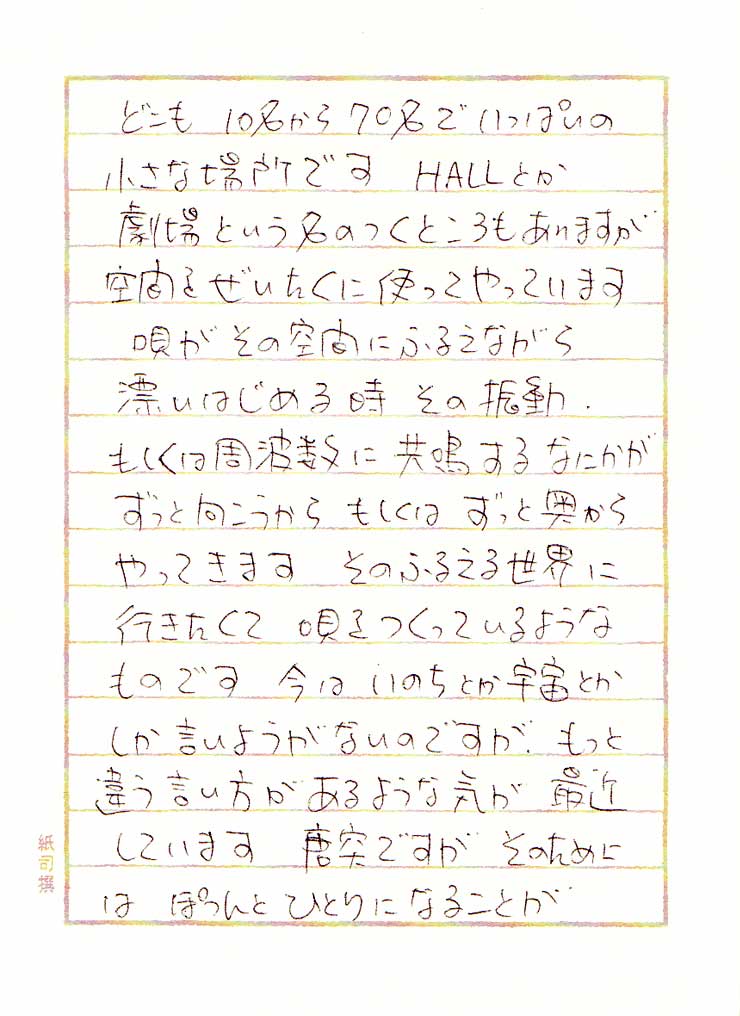 どこも 10名から70名でいっぱいの
小さな場所です HALLとか
劇場という名のつくところもありますが
空間をぜいたくに使ってやっています
唄がその空間にふるえながら
漂いはじめる時 その振動.
もしくは周波数に共鳴するなにかが
ずっと向こうから もしくは ずっと奥から
やってきます そのふるえる世界に
行きたくて 唄をつくっているような
ものです 今は いのちとか宇宙とか
しか言いようがないのですが. もっと
違う言い方があるような気が 最近
しています 唐突ですが そのために
は ぽつんとひとりになることが
紙司撰